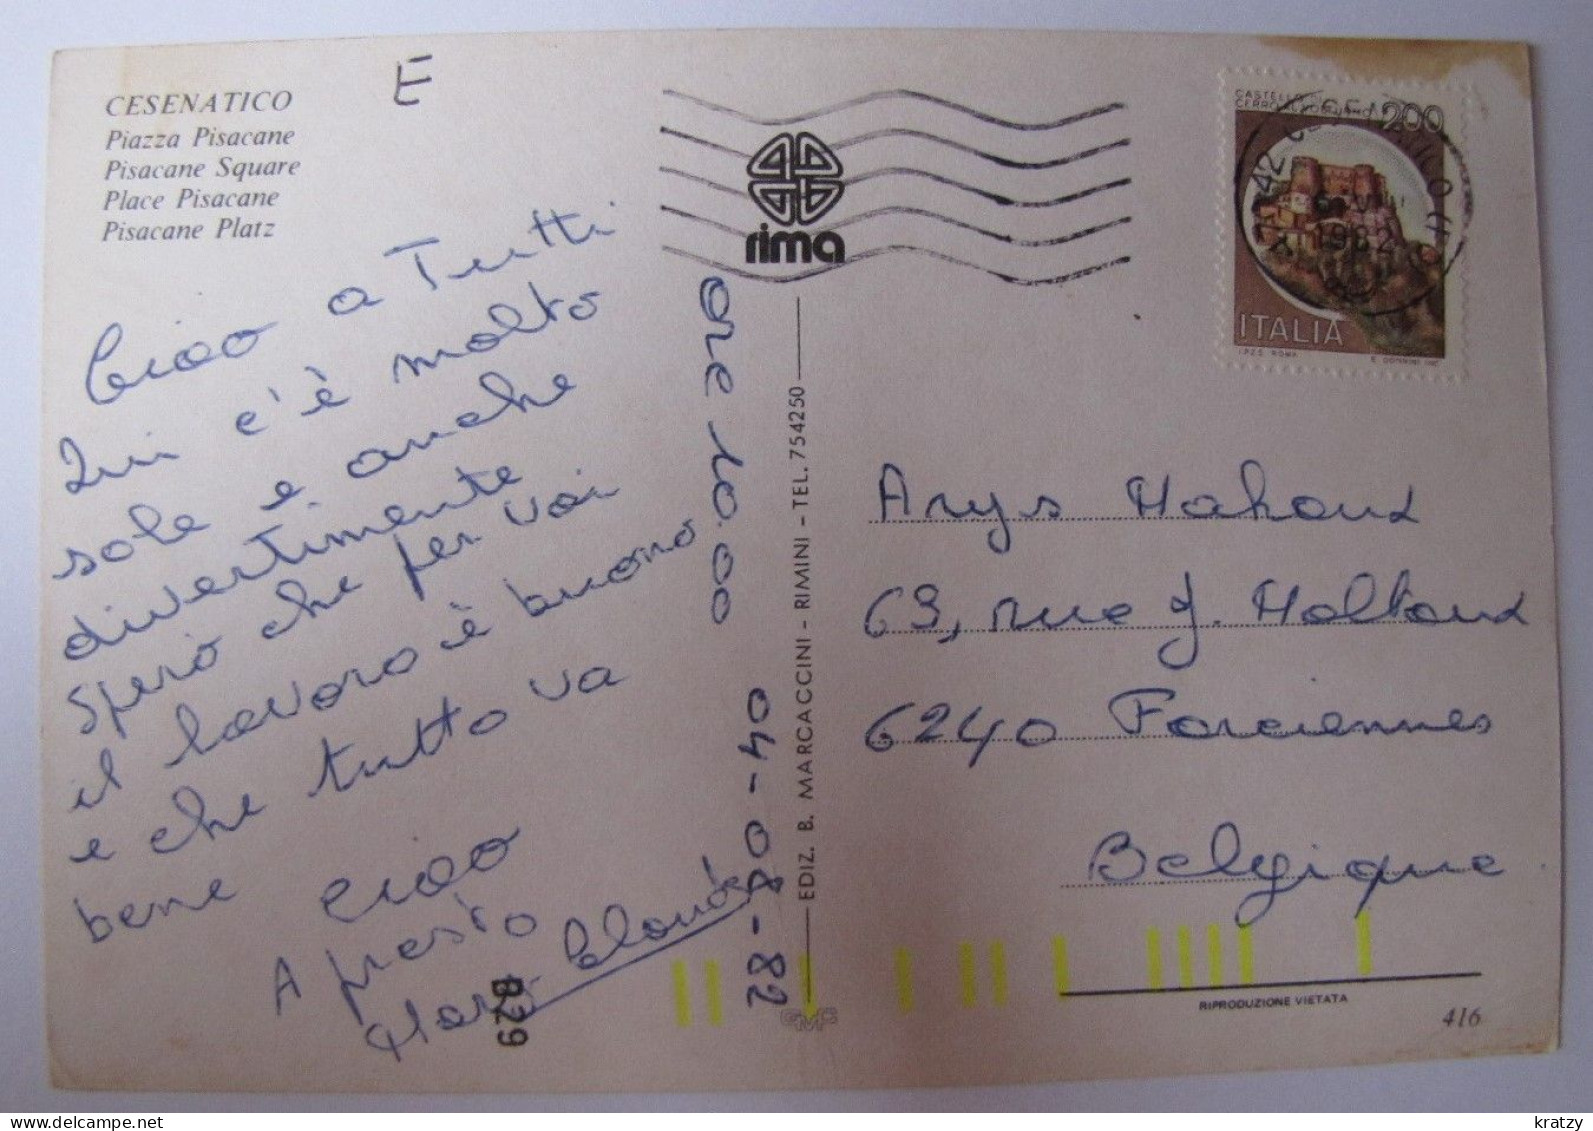 CESENATICO
Piazza Pisacane
Pisacane Square
Place Pisacane
Pisacane Platz
E
Ciao a Tutti
Qui c'è molto
sole e anche
divertimente
Spero che per voi
il lavoro è buono
e che tutto va
bene ciao
A presto
ore 10.00
04-08-82
B29
rima
EDIZ. B. MARCACCINI - RIMINI - TEL. 754250
CASTELLO
200
1982
ITALIA
I.P.Z.S. ROMA
Arys Hahaux
63, rue J. Holtaux
6240 Farciennes
Belgique
RIPRODUZIONE VIETATA
416
kratzy